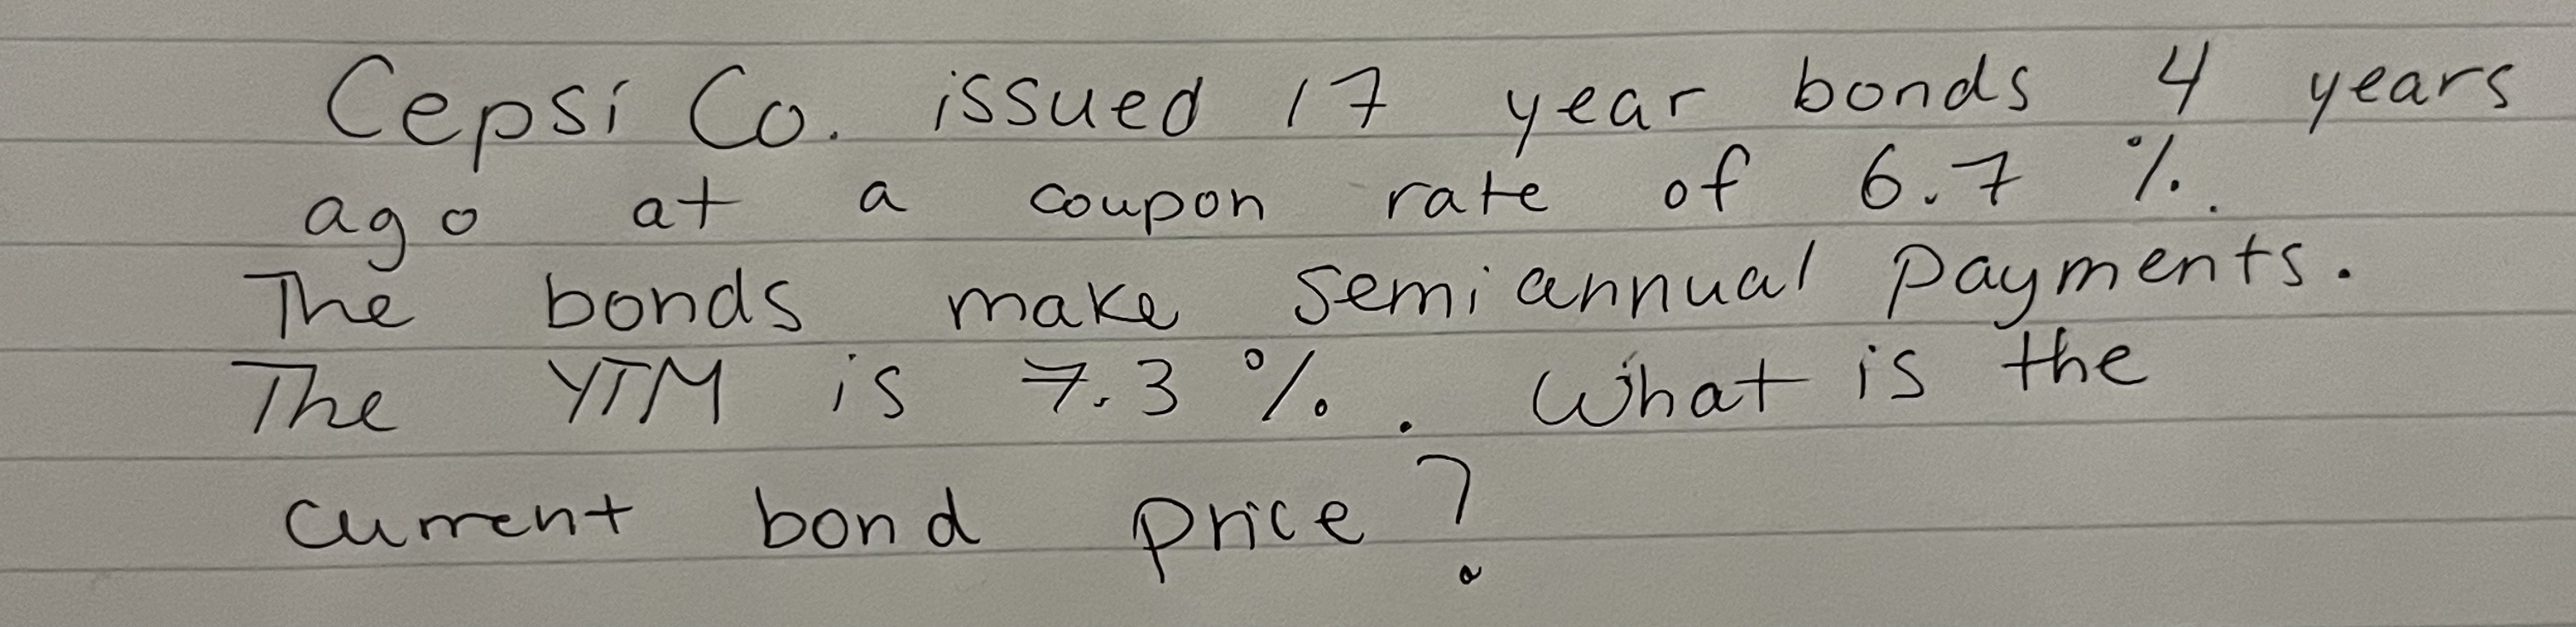 Cepsi Co. issued 17 year bonds 4 years
ago at a coupon rate of 6.7 %.
The bonds make semiannual payments.
The YTM is 7.3 %. What is the
current bond price?